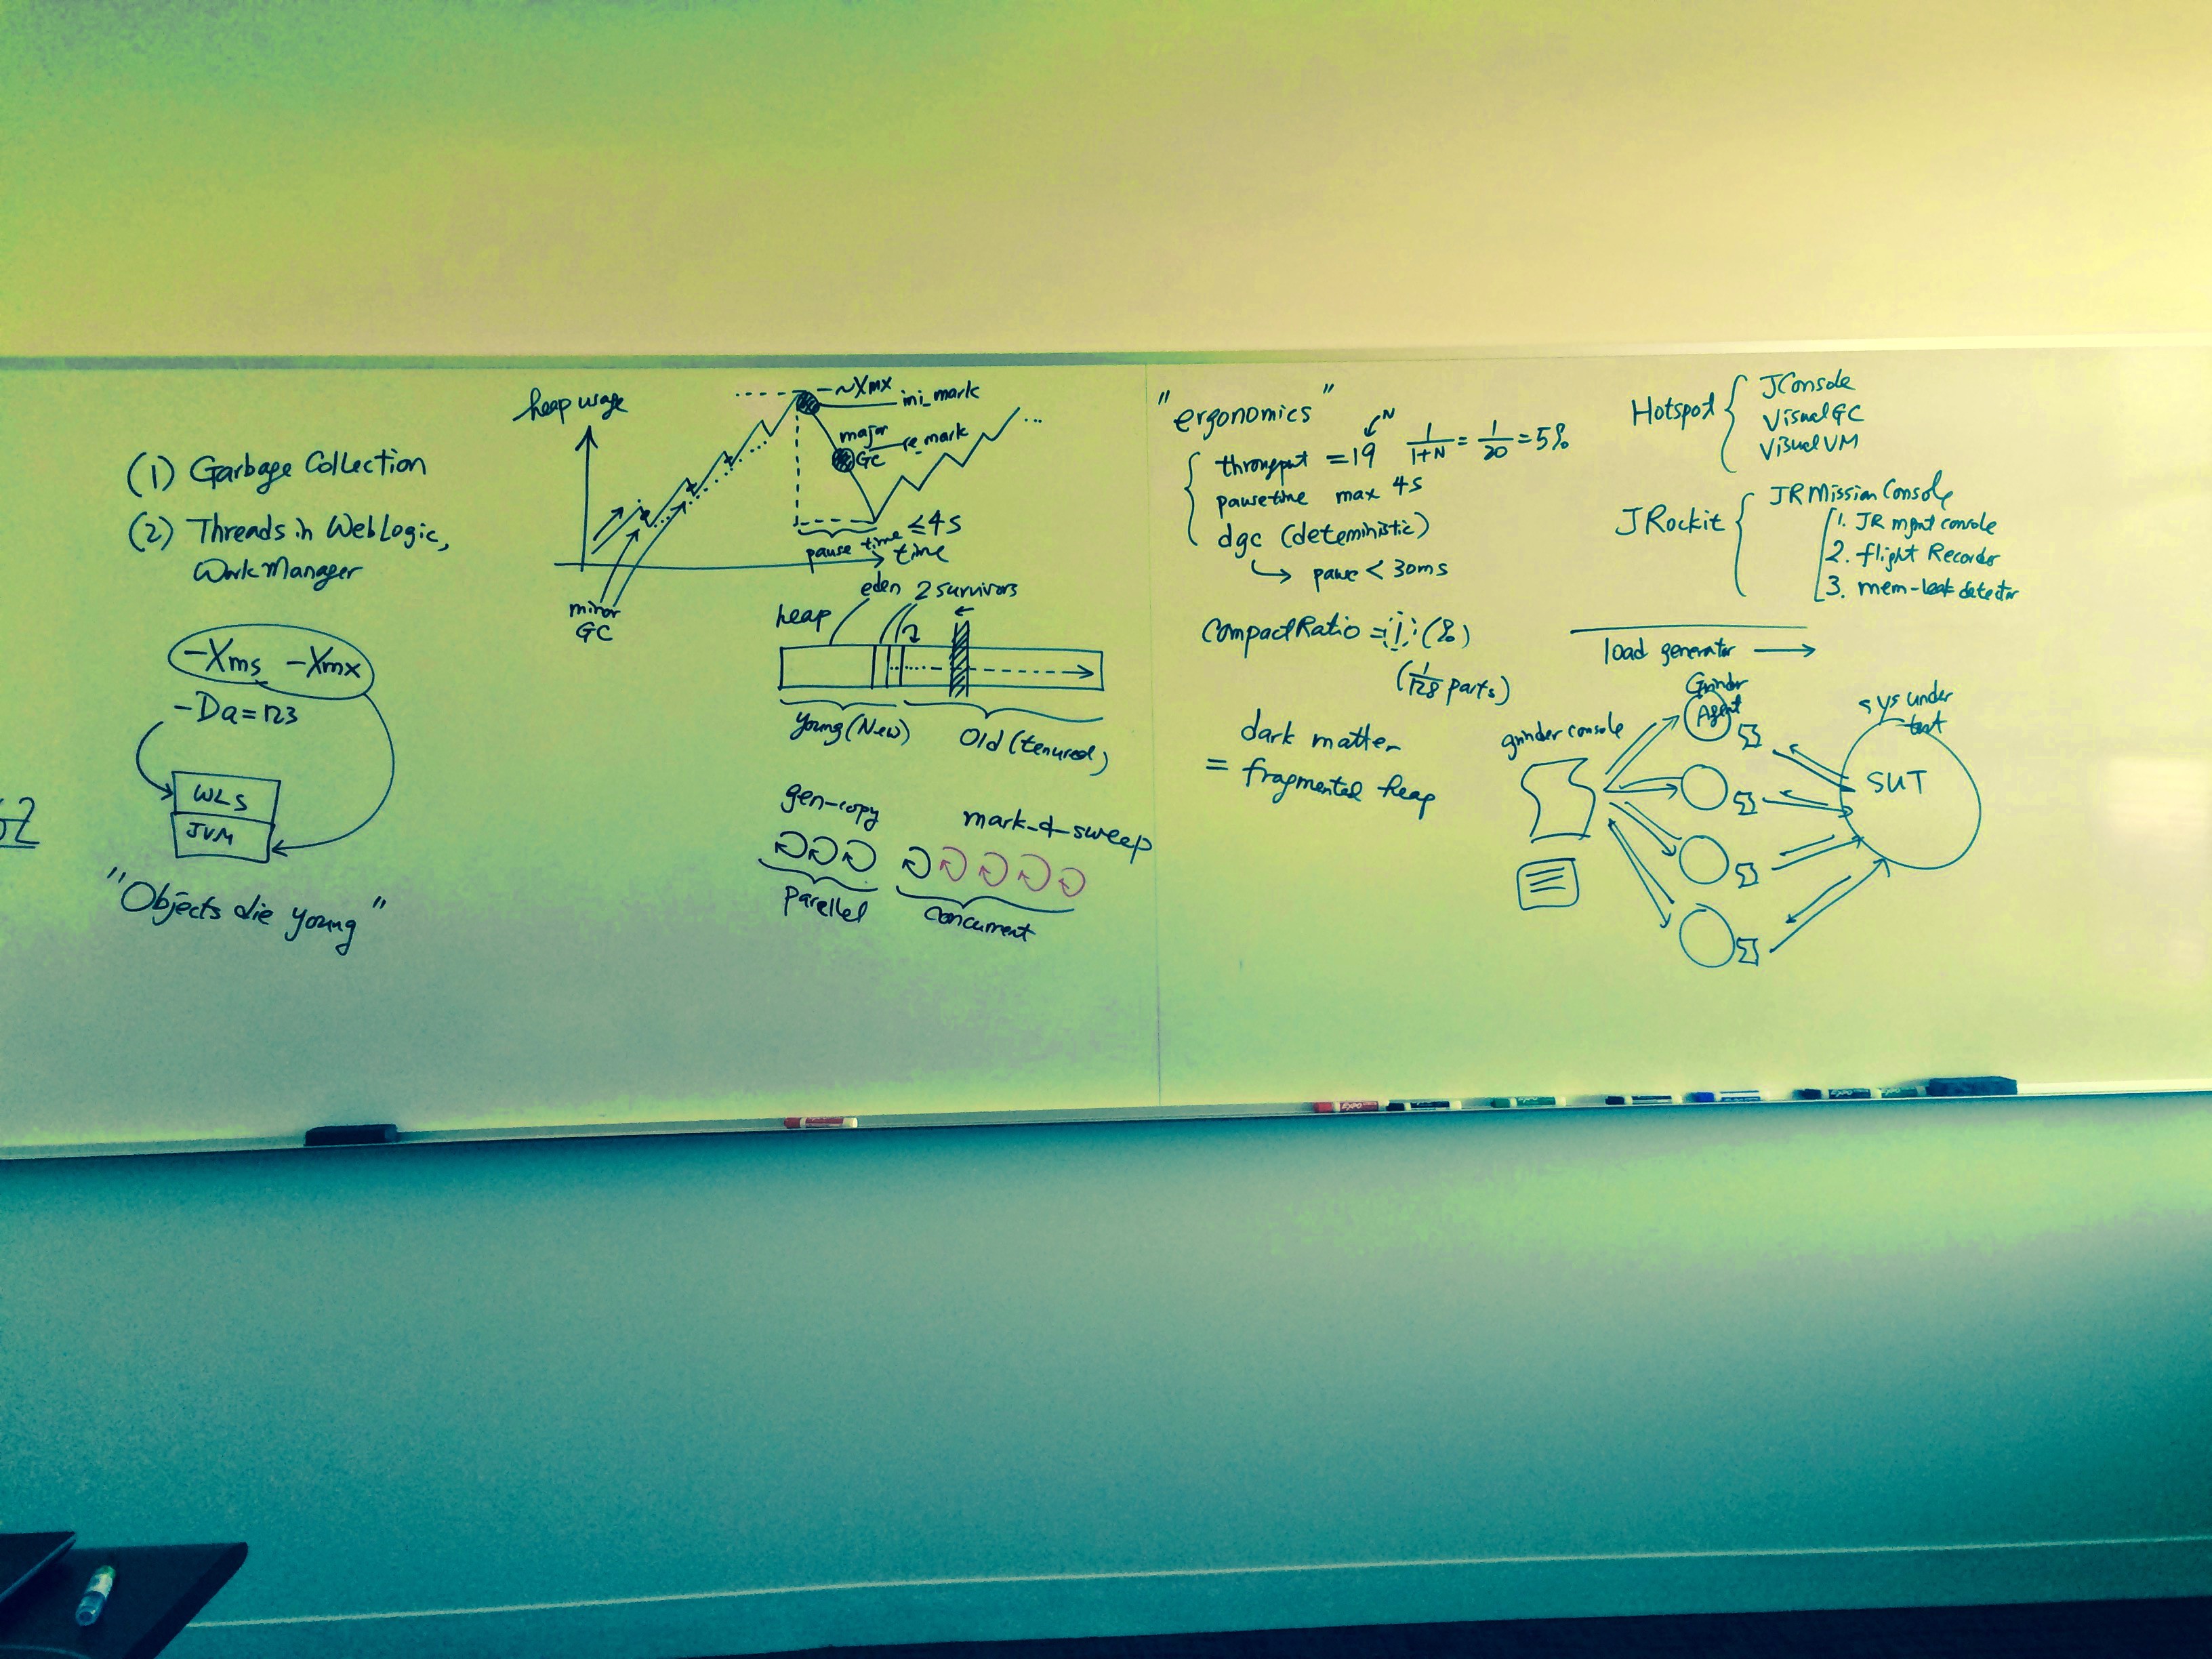 (1) Garbage Collection
(2) Threads in WebLogic,
Work Manager
-Xms -Xmx
-Da=123
WLS
JVM
"Objects die young"
heap usage
~Xmx
ini_mark
major
GC
re_mark
≤4s
pause time
time
minor
GC
eden 2 survivors
heap
young (New)
Old (tenured)
gen-copy
mark-&-sweep
parellel
concurrent
"ergonomics"
N
throughput =19 1/1+N = 1/20 = 5%
pausetime max 4s
dgc (deteministic)
pause < 30ms
compactRatio = 1 (%)
(1/128 parts)
dark matter
= fragmented heap
Hotspot
JConsole
VisualGC
VisualVM
JRockit
JR Mission Console
1. JR mgmt console
2. flight Recorder
3. mem-leak detector
load generator
grinder console
Grinder
Agent
sys under
test
SUT